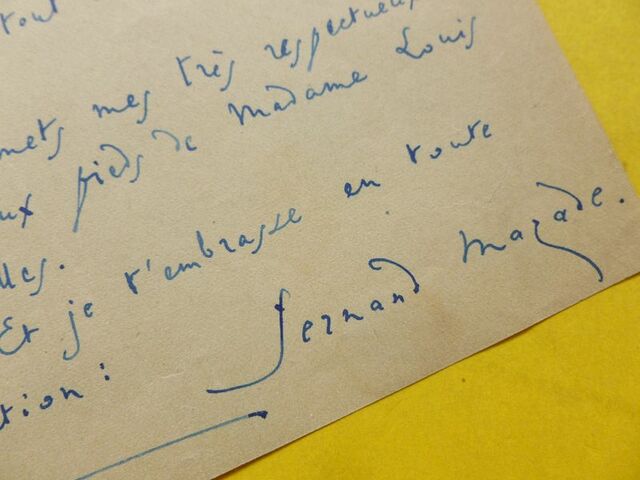 tout
mets mes très respectueux
ux pieds de Madame Louis
lles.
Et je t'embrasse en toute
tion :
Fernand Mazade.